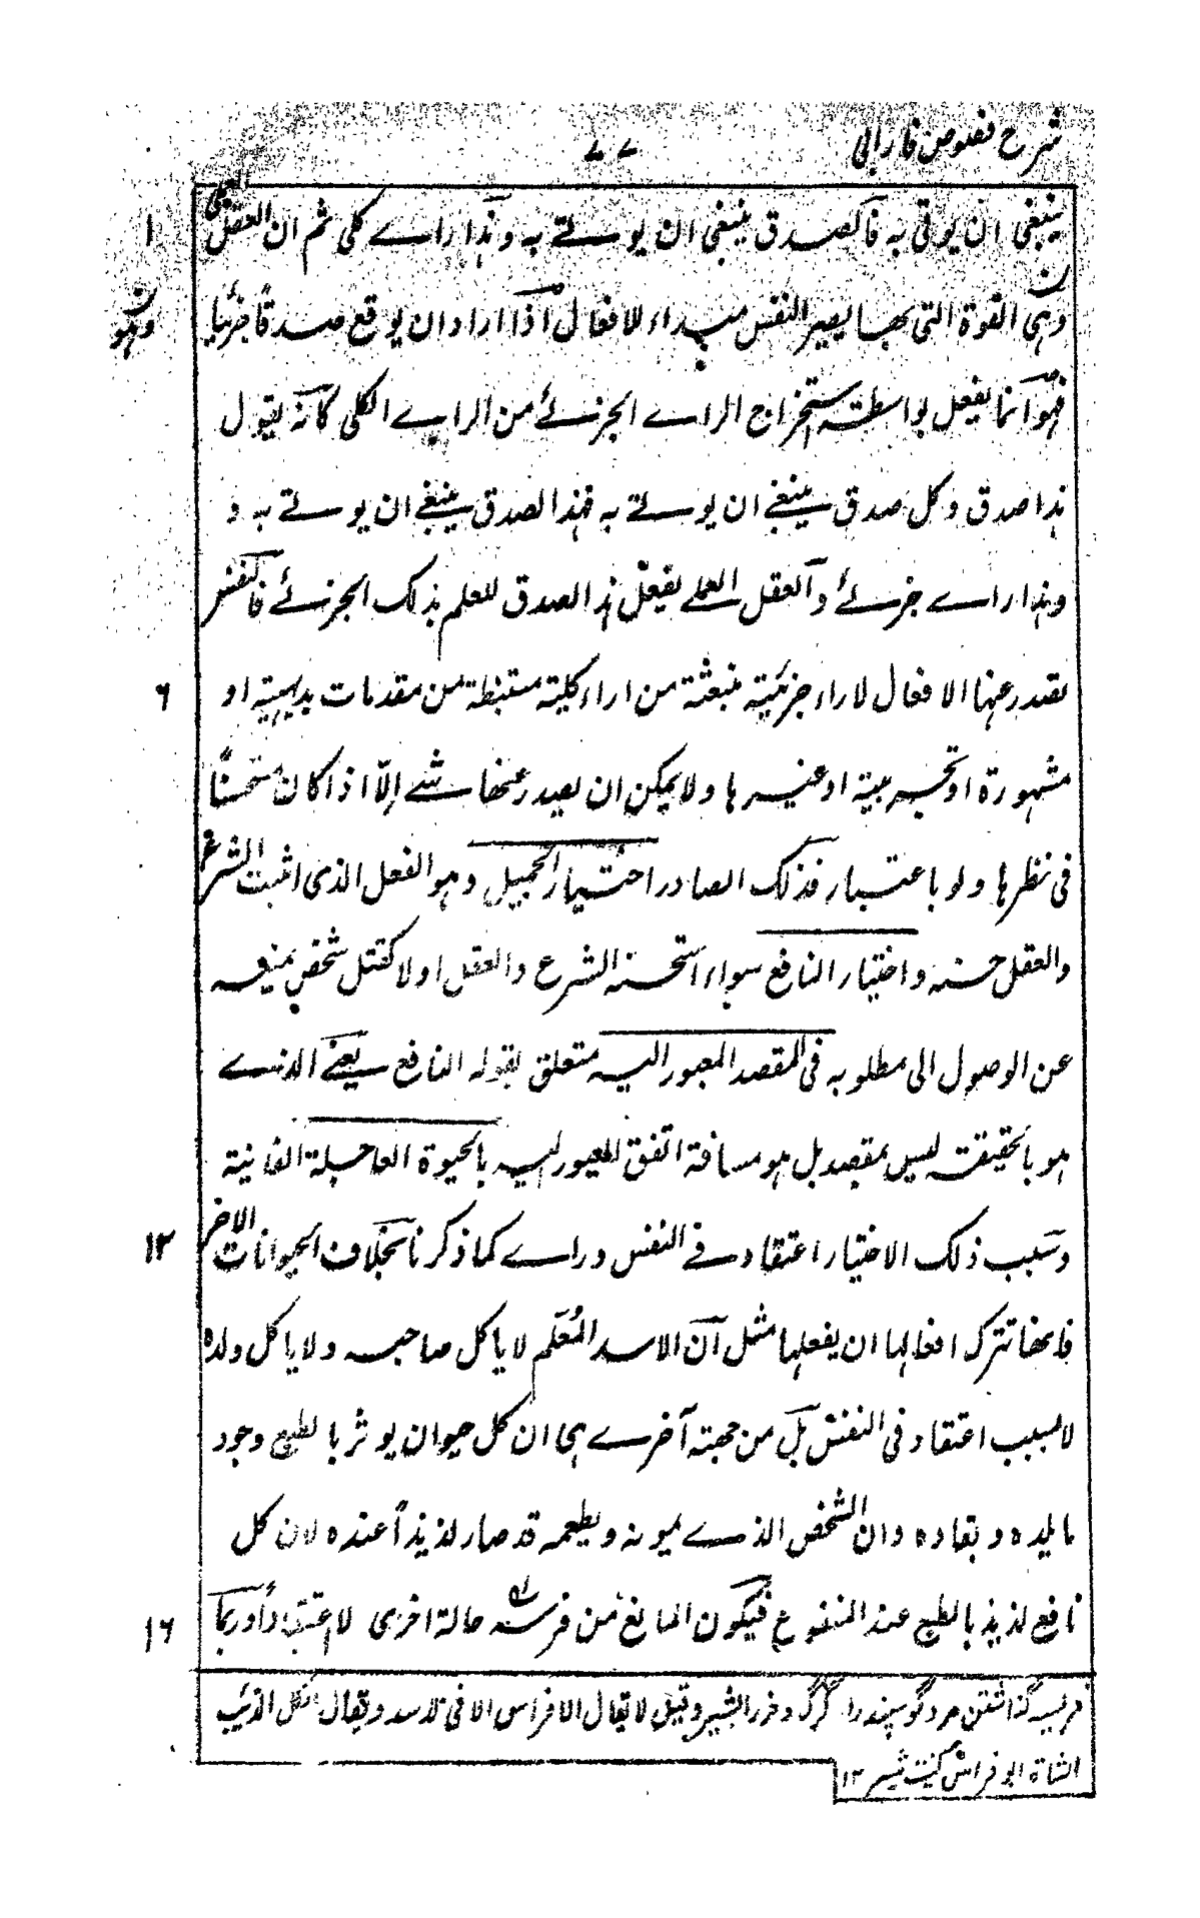 شرح فصوص فارابی
۷۷
ینبغی ان یوتی به فالصدق ینبغی ان یوتے به وهذا راے کلی ثم ان العقل العملی
۱
وهی القوة التی بها یصیر النفس مبداء للافعال اذا اراد ان یوقع صدقًا جزئیًا
وهو
فهو انما یفعل بواسطته استخراج الراے الجزئے من الراے الکلی کانه یقول
هذا صدق وکل صدق ینبغے ان یوتے به فهذا الصدق ینبغے ان یوتے به و
وهذا راے جزئے والعقل العملے یفعل هذا الصدق للعلم بذلک الجزئے فالنفس
یصدر عنها الافعال لاراء جزئیة منبعثة من اراء کلیة مستنبطة من مقدمات بدیهیة او
۶
مشهورة او تجربیة او غیرها ولا یمکن ان یصدر عنها شے إلّا اذا کان مستحسنًا
فی نظرها ولو باعتبار فذلک الصادر اختیار الجمیل وهو الفعل الذی اثبت الشرع
والعقل حسنه واختیار النافع سواء استحسنه الشرع والعقل اولا کقتل شخص یمنعه
عن الوصول الی مطلوبه فی المقصد المعبور الیه متعلق بقوله النافع یعنے الذے
هو بالحقیقت لیس بمقصد بل هو مسافة اتفق العبور الیه بالحیوة العاجلة الفانیة
وسبب ذلک الاختیار اعتقاد فے النفس وراے کما ذکرنا بخلاف الحیوانات الاخر
۱۲
فانها تترک افعالها ان یفعلها مثل ان الاسد المُعلّم لا یاکل صاحبه ولا یاکل ولده
لا لسبب اعتقاد فی النفس بل من جهته آخرے هی ان کل حیوان یوثر بالطبع وجود
ما یلده وبقاده وان الشخص الذے یمونه ویطعمه قد صار لذیذاً عنده لان کل
نافع لذیذ بالطبع عند المنفوع فیکون المانع من فرسه حالة اخری لا اعتقاداً وربما
۱۶
فریسه گذاشتن مرد گوسپند را گرگ وقیل لا یقال الافراس الا فی الاسد ویقال اکل الذئب
الشاة ابو فراس کنیت شیر ۱۲